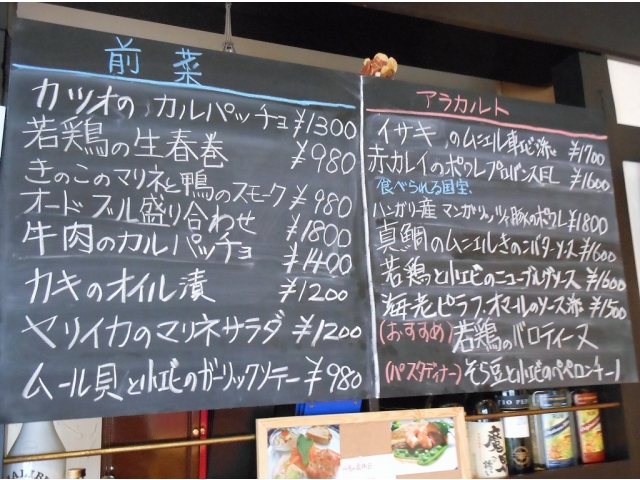 前菜
カツオの カルパッチョ ¥1300
若鶏の生春巻 ¥980
きのこのマリネと鴨のスモーク ¥980
オードブル盛り合わせ ¥1800
牛肉のカルパッチョ ¥1400
カキのオイル漬 ¥1200
ヤリイカのマリネサラダ ¥1200
ムール貝と小エビのガーリックソテー ¥980
アラカルト
イサキ のムニエル車エビ添え ¥1700
赤カレイのポワレプロバンス風 ¥1600
食べられる国宝
ハンガリ産マンガリッツァ豚のポワレ ¥1800
真鯛のムニエルきのこバターソース ¥1600
若鶏と小エビのニューブルグソース ¥1600
海老ピラフ・オマールのソース添 ¥1500
(おすすめ) 若鶏のバロティーヌ
(パスタディナー) そら豆と小エビのペペロンチーノ